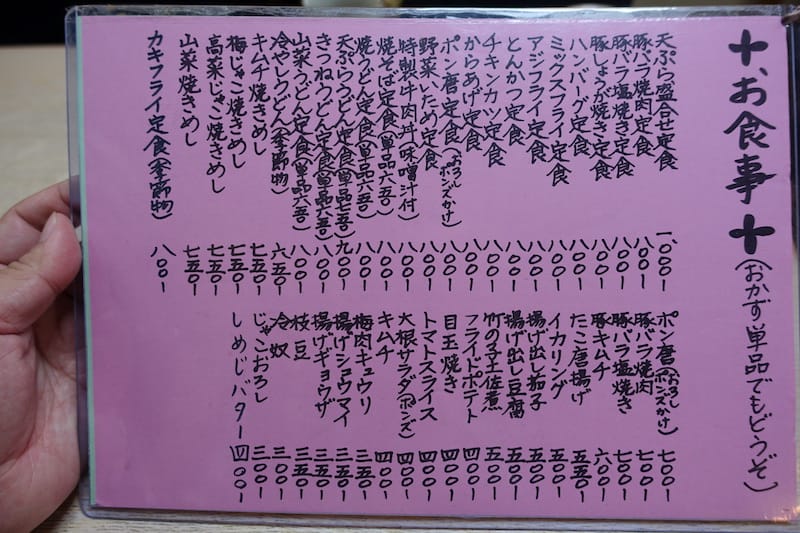 ✚お食事✚(おかず単品でもどうぞ)
天ぷら盛合せ定食 一、〇〇〇-
豚バラ焼肉定食 八〇〇-
豚バラ塩焼き定食 八〇〇-
豚しょうが焼き定食 八〇〇-
ハンバーグ定食 八〇〇-
ミックスフライ定食 八〇〇-
アジフライ定食 八〇〇-
とんかつ定食 八〇〇-
チキンカツ定食 八〇〇-
からあげ定食 八〇〇-
ポン唐定食(おろしポンズかけ) 八〇〇-
野菜いため定食 八〇〇-
特製牛肉丼(味噌汁付) 八〇〇-
焼そば定食(単品六五〇) 八〇〇-
焼うどん定食(単品六五〇) 八〇〇-
天ぷらうどん定食(単品七五〇) 九〇〇-
きつねうどん定食(単品六五〇) 八〇〇-
山菜うどん定食(単品六五〇) 八〇〇-
冷やしうどん(季節物) 六五〇-
キムチ焼きめし 七五〇-
梅じゃこ焼きめし 七五〇-
高菜じゃこ焼きめし 七五〇-
山菜焼きめし 七五〇-
カキフライ定食(季節物) 八〇〇-
ポン唐(おろしポンズかけ) 七〇〇-
豚バラ焼肉 七〇〇-
豚バラ塩焼き 七〇〇-
豚キムチ 六〇〇-
たこ唐揚げ 五五〇-
イカリング 五〇〇-
揚げ出し茄子 五〇〇-
揚げ出し豆腐 五〇〇-
竹の子土佐煮 五〇〇-
フライドポテト 四〇〇-
目玉焼き 四〇〇-
トマトスライス 四〇〇-
大根サラダ(ポンズ) 四〇〇-
キムチ 四〇〇-
梅肉キュウリ 三五〇-
揚げシュウマイ 三五〇-
揚げギョウザ 三五〇-
枝豆 三五〇-
冷奴 三〇〇-
じゃこおろし 三〇〇-
しめじバター 四〇〇-